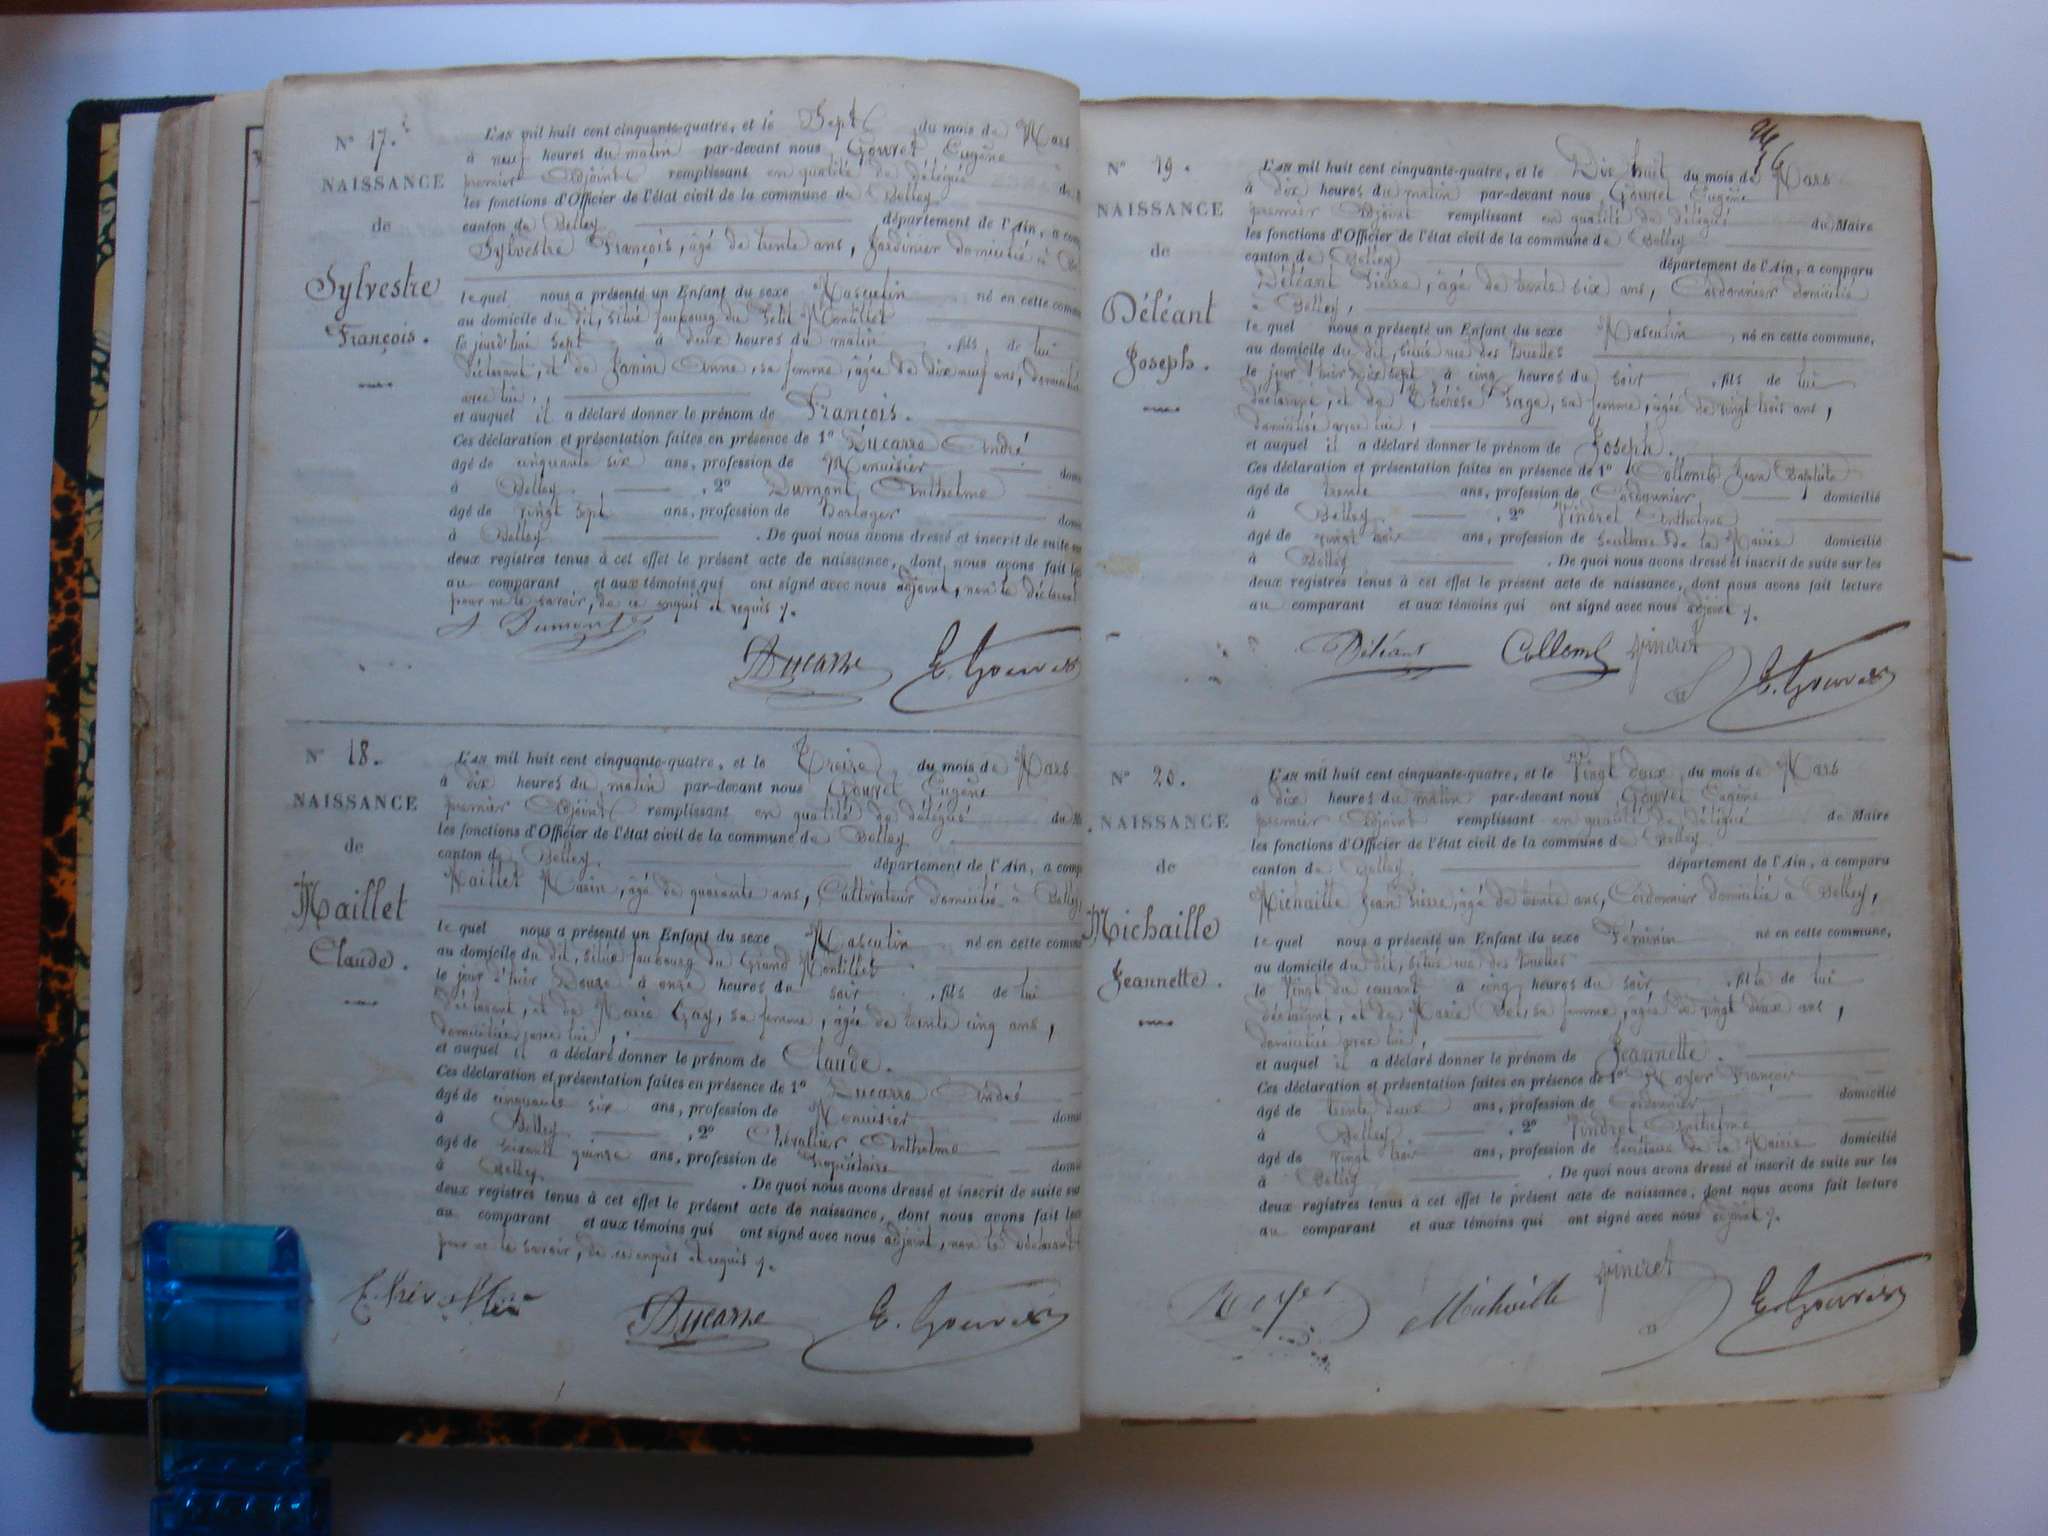 N° 17.
NAISSANCE
de
Sylvestre
François.
L'AN mil huit cent cinquante-quatre, et le Sept du mois de Mars
à neuf heures du matin par-devant nous Gouvret Eugène
premier Adjoint remplissant en qualité de délégué du
les fonctions d'Officier de l'état civil de la commune de Belley
canton de Belley département de l'Ain, a comp
Sylvestre François, âgé de trente ans, Jardinier domicilié à Be
lequel nous a présenté un Enfant du sexe Masculin né en cette commu
au domicile du dit, situé faubourg du Petit Montillet
ce jourd'hui sept à deux heures du matin, fils de lui
déclarant, et de Janin Anne, sa femme, âgée de dix neuf ans, domiciliée
avec lui,
et auquel il a déclaré donner le prénom de François.
Ces déclaration et présentation faites en présence de 1° Ducarre André
âgé de cinquante six ans, profession de Menuisier domi
à Belley, 2° Dumont Anthelme
âgé de vingt sept ans, profession de Horloger domi
à Belley. De quoi nous avons dressé et inscrit de suite sur
deux registres tenus à cet effet le présent acte de naissance, dont nous avons fait lec
au comparant et aux témoins qui ont signé avec nous adjoint, non le déclarant
pour ne le savoir, de ce enquis et requis.
A. Dumont
Ducarre E. Gouvret
N° 18.
NAISSANCE
de
Maillet
Claude.
L'AN mil huit cent cinquante-quatre, et le Treize du mois de Mars
à dix heures du matin par-devant nous Gouvret Eugène
premier Adjoint remplissant en qualité de délégué du Ma
les fonctions d'Officier de l'état civil de la commune de Belley
canton de Belley. département de l'Ain, a comp
Maillet Marin, âgé de quarante ans, Cultivateur domicilié à Belley,
lequel nous a présenté un Enfant du sexe Masculin né en cette commu
au domicile du dit, situé faubourg du Grand Montillet
le jour d'hier Douze à onze heures du soir, fils de lui
déclarant, et de Marie Gay, sa femme, âgée de trente cinq ans,
domiciliée avec lui,
et auquel il a déclaré donner le prénom de Claude.
Ces déclaration et présentation faites en présence de 1° Ducarre André
âgé de cinquante six ans, profession de Menuisier domi
à Belley, 2° Chevallier Anthelme
âgé de soixante quinze ans, profession de Propriétaire domi
à Belley. De quoi nous avons dressé et inscrit de suite sur
deux registres tenus à cet effet le présent acte de naissance, dont nous avons fait lec
au comparant et aux témoins qui ont signé avec nous adjoint, non le déclarant
pour ne le savoir, de ce enquis et requis.
Chevallier Ducarre E. Gouvret
N° 19.
NAISSANCE
de
Déléant
Joseph.
L'AN mil huit cent cinquante-quatre, et le Dix huit du mois de Mars
à dix heures du matin par-devant nous Gouvret Eugène
premier Adjoint remplissant en qualité de délégué du Maire
les fonctions d'Officier de l'état civil de la commune de Belley
canton de Belley département de l'Ain, a comparu
Déléant Pierre, âgé de trente six ans, Cordonnier domicilié
à Belley,
lequel nous a présenté un Enfant du sexe Masculin, né en cette commune,
au domicile du dit, situé rue des Ruelles
le jour d'hier dix sept à cinq heures du soir, fils de lui
déclarant, et de Thérèse Sage, sa femme, âgée de vingt trois ans,
domiciliée avec lui,
et auquel il a déclaré donner le prénom de Joseph.
Ces déclaration et présentation faites en présence de 1° Collomb Jean Baptiste
âgé de trente ans, profession de Cordonnier domicilié
à Belley. 2° Vindret Anthelme
âgé de vingt trois ans, profession de Secrétaire de la Mairie domicilié
à Belley. De quoi nous avons dressé et inscrit de suite sur les
deux registres tenus à cet effet le présent acte de naissance, dont nous avons fait lecture
au comparant et aux témoins qui ont signé avec nous adjoint.
Déléant Collomb Vindret
E. Gouvret
N° 20.
NAISSANCE
de
Michaille
Jeannette.
L'AN mil huit cent cinquante-quatre, et le Vingt deux du mois de Mars
à dix heures du matin par-devant nous Gouvret Eugène
premier Adjoint remplissant en qualité de délégué de Maire
les fonctions d'Officier de l'état civil de la commune de Belley
canton de Belley. département de l'Ain, a comparu
Michaille Jean Pierre, âgé de trente ans, Cordonnier domicilié à Belley,
lequel nous a présenté un Enfant du sexe Féminin né en cette commune,
au domicile du dit, situé rue des Ruelles
le Vingt du courant à cinq heures du soir, fille de lui
déclarant, et de Marie sa femme, âgée de vingt deux ans,
domiciliée avec lui,
et auquel il a déclaré donner le prénom de Jeannette.
Ces déclaration et présentation faites en présence de 1° Royer François
âgé de trente deux ans, profession de Cordonnier domicilié
à Belley. 2° Vindret Anthelme
âgé de vingt trois ans, profession de Secrétaire de la Mairie domicilié
à Belley. De quoi nous avons dressé et inscrit de suite sur les
deux registres tenus à cet effet le présent acte de naissance, dont nous avons fait lecture
au comparant et aux témoins qui ont signé avec nous adjoint.
Royer Michaille Vindret E. Gouvret